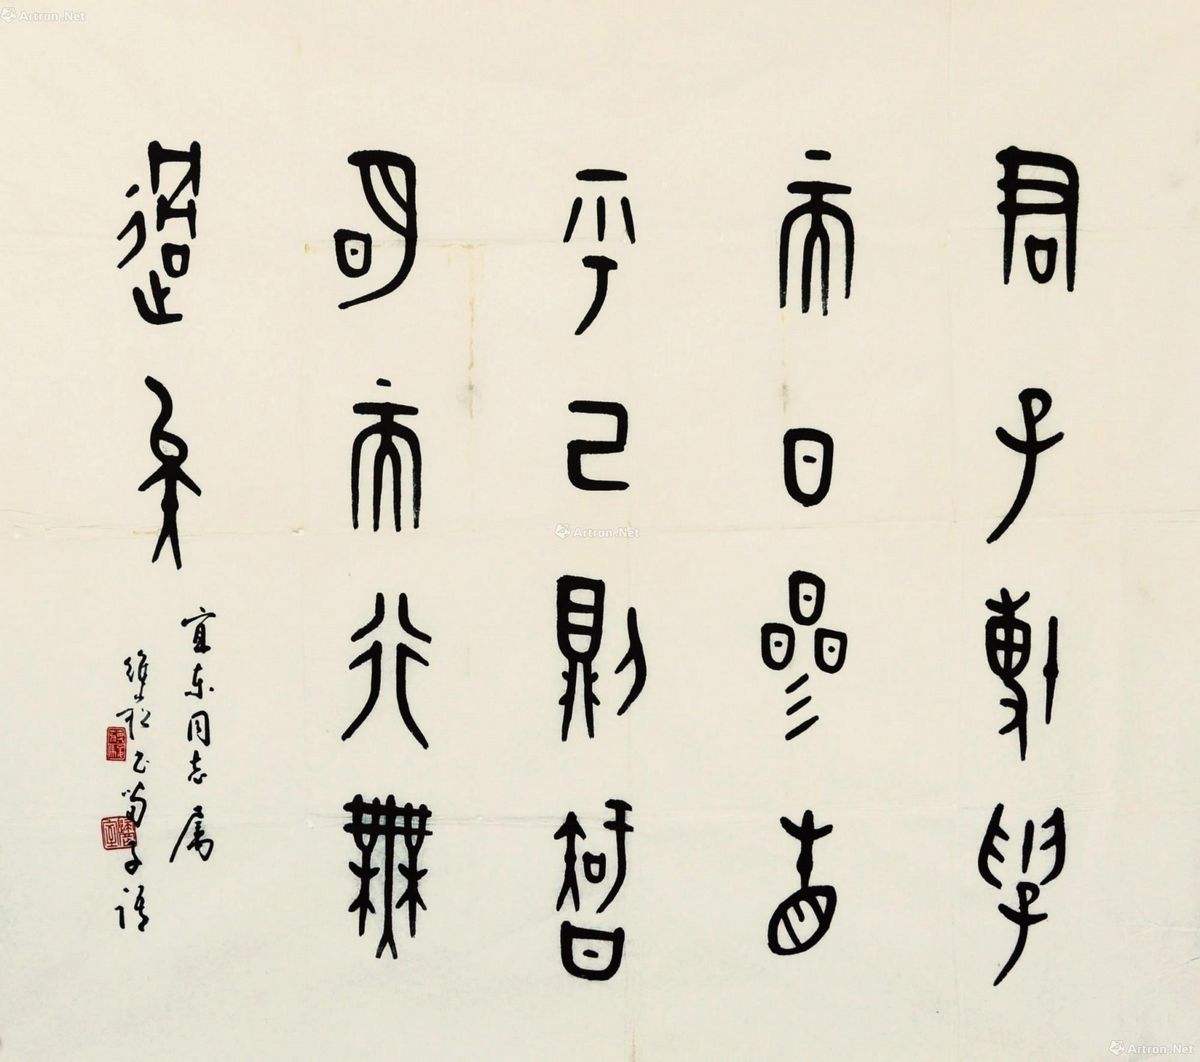 君子博學
而日參省
乎己則智
明而行無
過矣
宜东同志属
书荀子语
Artron.Net
Artron.Net
Artron.Net